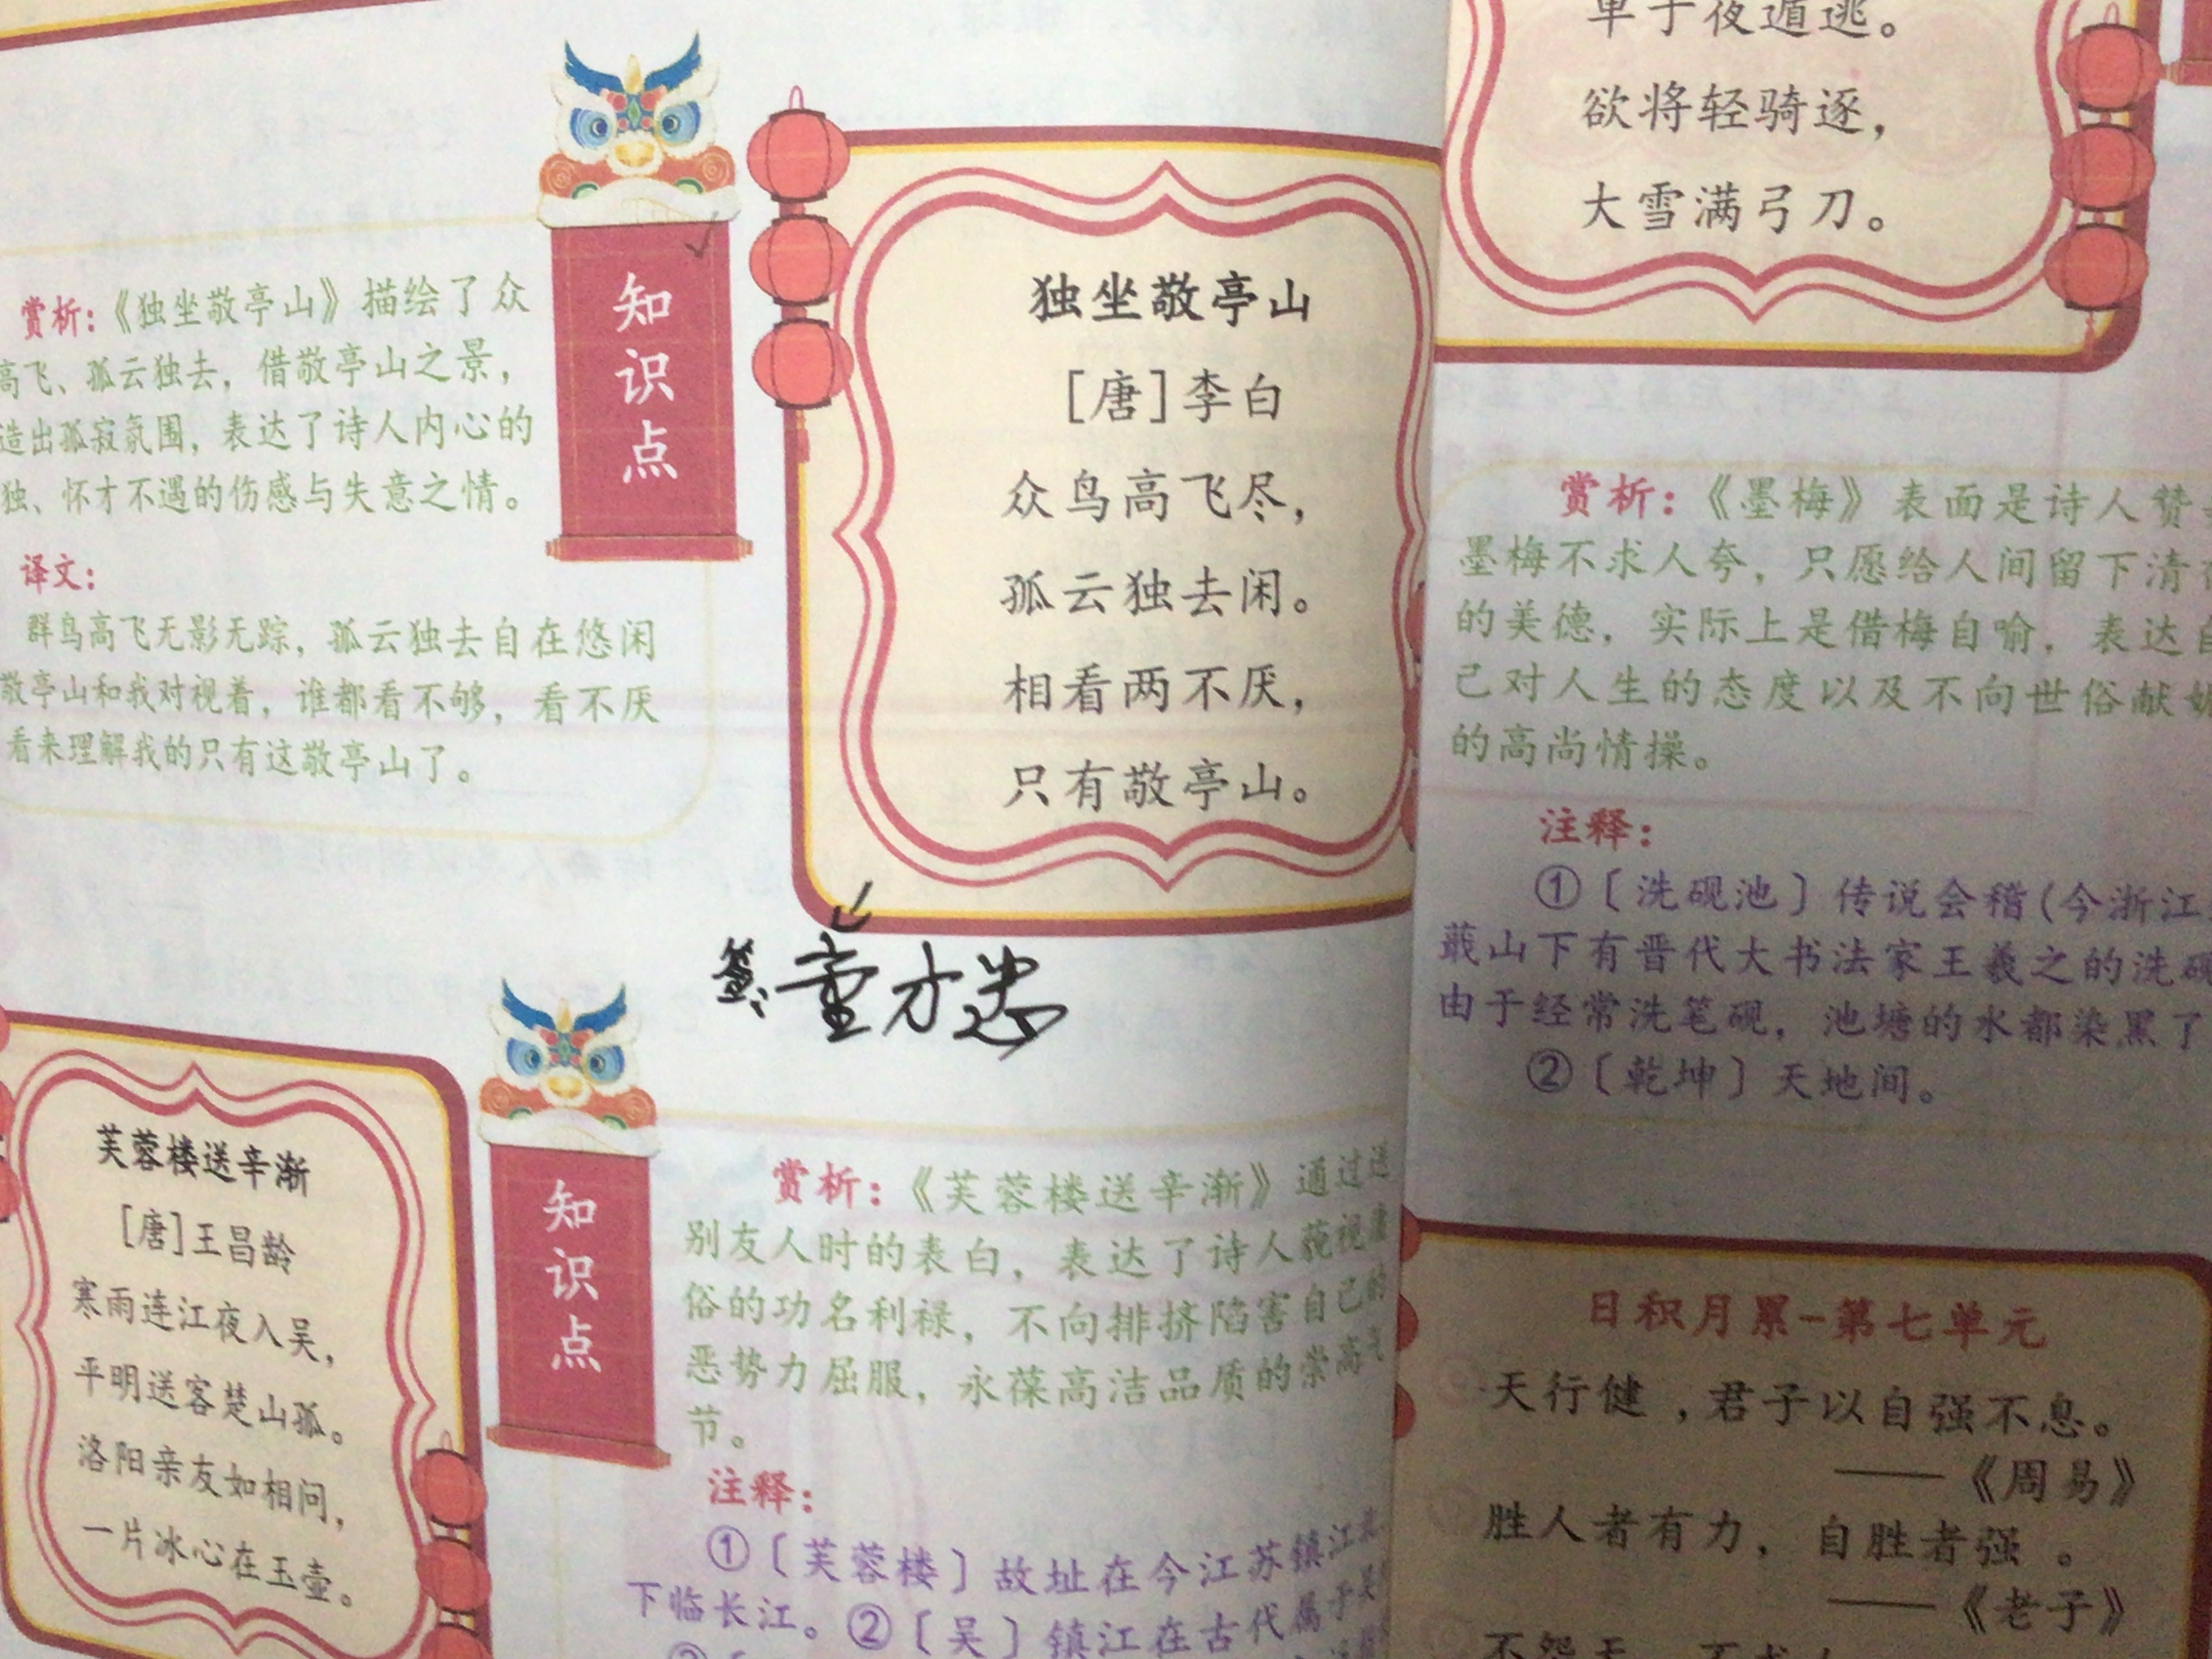 知识点
赏析：《独坐敬亭山》描绘了众
高飞、孤云独去，借敬亭山之景，
造出孤寂氛围，表达了诗人内心的
独、怀才不遇的伤感与失意之情。
译文：
群鸟高飞无影无踪，孤云独去自在悠闲
敬亭山和我对视着，谁都看不够，看不厌
看来理解我的只有这敬亭山了。
独坐敬亭山
[唐]李白
众鸟高飞尽，
孤云独去闲。
相看两不厌，
只有敬亭山。
芙蓉楼送辛渐
[唐]王昌龄
寒雨连江夜入吴，
平明送客楚山孤。
洛阳亲友如相问，
一片冰心在玉壶。
知识点
赏析：《芙蓉楼送辛渐》通过送
别友人时的表白，表达了诗人藐视庸
俗的功名利禄，不向排挤陷害自己的
恶势力屈服，永葆高洁品质的崇高气
节。
注释：
①〔芙蓉楼〕故址在今江苏镇江北
下临长江。②〔吴〕镇江在古代属于吴
单于夜遁逃。
欲将轻骑逐，
大雪满弓刀。
赏析：《墨梅》表面是诗人赞
墨梅不求人夸，只愿给人间留下清
的美德，实际上是借梅自喻，表达自
己对人生的态度以及不向世俗献媚
的高尚情操。
注释：
①〔洗砚池〕传说会稽(今浙江
蕺山下有晋代大书法家王羲之的洗砚
由于经常洗笔砚，池塘的水都染黑了
②〔乾坤〕天地间。
日积月累-第七单元
天行健，君子以自强不息。
——《周易》
胜人者有力，自胜者强。
——《老子》
不怨天，不求人